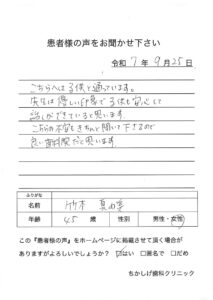 患者様の声をお聞かせ下さい
令和 7 年 9 月 25 日
こちらへは子供と通っています。
先生は優しい印象で子供も安心して
話しができていると思います
こちらの不安もきちんと聞いて下さるので
良い歯科院だと思います
ふりがな
名前 竹本 真由美
年齢 45 歳 性別 男性・女性
この『患者様の声』をホームページに掲載させて頂く場合が
ありますがよろしいでしょうか? ☑はい □匿名で □だめ
ちかしげ歯科クリニック